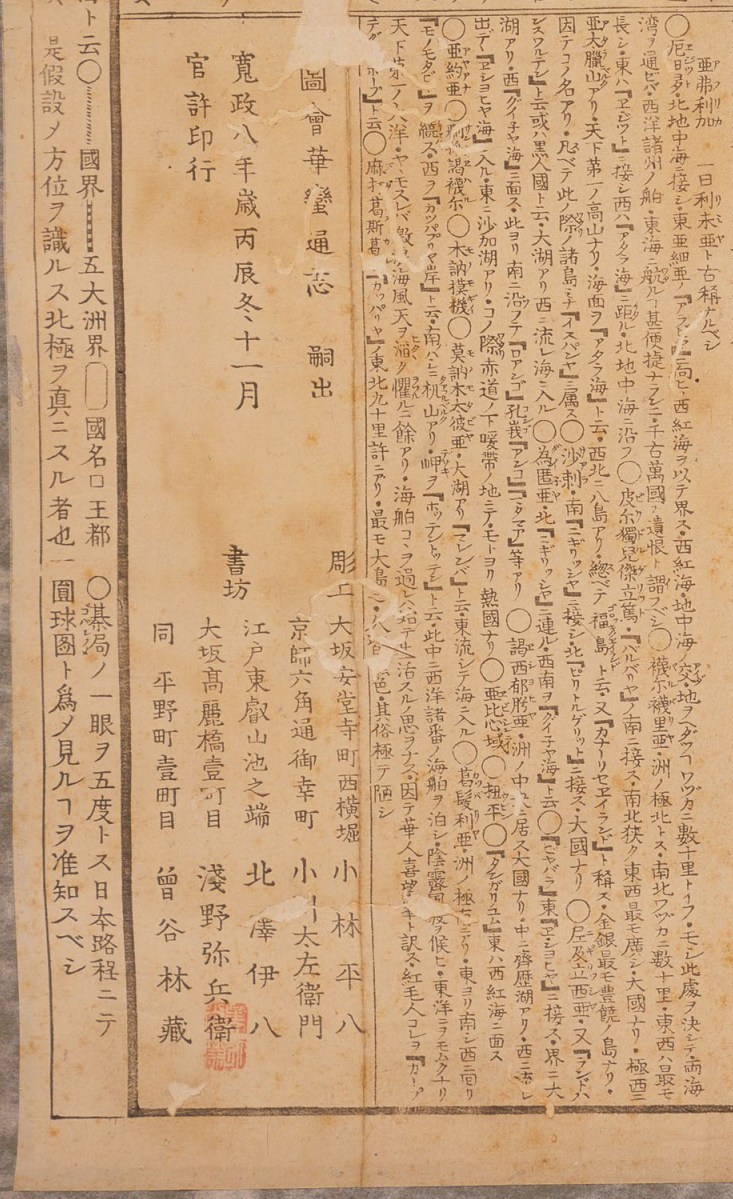 亜弗利加 一曰利未亜ト古稱ナルベシ
〇厄日多・北地中海ニ接シ・東亜細亜ノ『アラビヤ』ニ向ヒ・西紅海ヲ以テ界ス・西紅海・地中海ノ交・地ヲヘダツヿワヅカニ數十里トイフ・モシ此處ヲ決シテ・両海
湾ヲ通ビバ・西洋諸州ノ舶・東海ニ航ルヿ甚便捷ナランニ・千古萬國ノ遺恨ト謂フベシ〇襪尓襪里亜・洲ノ極北トス・南北ワヅカニ數十里・東西ハ最モ
長シ・東ハ『ヱジツト』ニ接シ西ハ『アタラ海』ニ距ル・北地中海ニ沿フ〇皮尓獨兒傑立篤・『バルバリヤ』ノ南ニ接ス・南北狭ク東西最モ廣シ・大國ナリ・極西ニ
亜大臘山アリ・天下第一ノ高山ナリ・海面ヲ『アタラ海』ト云・西北ニ八島アリ・總ベテ福島ト云・又『カナリセヱイランド』ト稱ス・金銀最モ豊饒ノ島ナリ・
因テコノ名アリ・凡ベテ此ノ際ノ諸島ミナ『イスパニヤ』ニ属ス〇沙剌・南『ニギリッシヤ』ニ接シ・北『ビリトルゲリット』ニ接ス・大國ナリ〇尼及立西亜・又『ランドハ
ンスワルテン』ト云或ハ黒人國ト云・大湖アリ西ニ流レ海ニ入ル〇為匿亜・北『ニギリッシヤ』ニ連ル・西南ヲ『グイ子ヤ海』ト云〇『ニヤバラ』東『ヱショヒヤ』ニ接ス・界ニ大
湖アリ・西『グイ子ヤ海』ニ面ス・此ヨリ南ニ沿フテ『ロアンゴ』孔峩『アンコ』『ニタマア』等アリ〇謁西郁肦亜・洲ノ中央ニ居ス大國ナリ・中ニ齊歴湖アリ・西ニ流レ
出デ『ヱショヒヤ海』ニ入ル・東ニ沙加湖アリ・コノ際赤道ノ下暖帶ノ地ニテ・モトヨリ熱國ナリ〇亜比心域〇杻平〇『ダンガリユム』東ハ西紅海ニ面ス
〇亜約亜〇謁襪尓〇木訥摸機〇莫訥木太彼亜・大湖アリ『ゼレンバ』ト云・東流シテ海ニ入ル〇葛髪利亜・洲ノ極南ニアリ・東ヨリ南シ西ニ向リ
『モノモタビヤ』ヲ繞ス・西ヲ『カッパブリヤ岸』ト云・南ハシニ机山アリ・岬ヲ『ホッテントッテン』ト云・此中ニ西洋諸番ノ海舶ヲ泊シ・陰霽風段ヲ候ヒ・東洋ニヲモムクナリ
天下第一ノ八洋・ヤヽモスレバ海風天ヲ滔ク懼ルニ餘アリ・海舶コヽヲ過レバ始テ生活スルノ思ヲナス・因テ華人喜望峰ト訳ス・紅毛人コレヲ『カーブ
デグーホープ』ト云〇麻打葛斯葛『カッパリヤ』ノ東北九十里許ニアリ・最モ大島・其俗極テ陋シ
圖會華蠻通志 嗣出
寛政八年歳丙辰冬十一月
官許印行
彫工 大坂安堂寺町西横堀 小林平八
京師六角通御幸町 小川太左衛門
書坊 江戸東叡山池之端 北澤伊八
大坂髙麗橋壹町目 淺野弥兵衛
同 平野町壹町目 曾谷林藏
ト云〇 國界 五大洲界 國名 王都 〇碁局ノ一眼ヲ五度トス日本路程ニテ
是假設メ方位ヲ識ルス北極ヲ真ニスル者也 圓球圖ト為メ見ルヿヲ准知スベシ